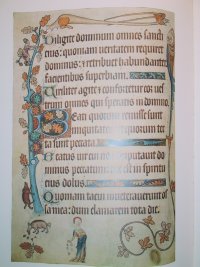 Diligite dominum omnes sancti
eius: quoniam veritatem requiret
dominus: et retribuet habundanter
facientibus superbiam.
Viriliter agite et confortetur cor ves
trum omnes qui speratis in domino.
Beati quorum remisse sunt
iniquitates: et quorum tec
ta sunt peccata.
Beatus vir cui non imputavit do
minus peccatum: nec est in spiritu
eius dolus.
Quoniam tacui inveteraverunt os
sa mea: dum clamarem tota die.